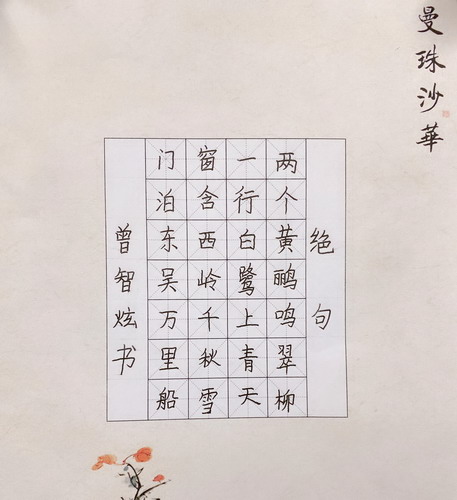 曼珠沙華
绝句
两个黄鹂鸣翠柳
一行白鹭上青天
窗含西岭千秋雪
门泊东吴万里船
曾智炫书